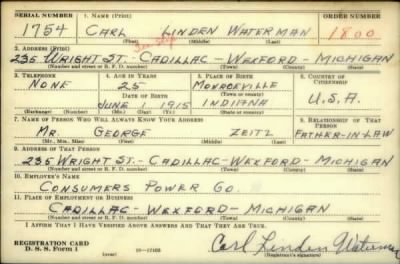 SERIAL NUMBER 1. NAME (Print) ORDER NUMBER
1754 CARL LINDEN WATERMAN 1800
(First) (Middle) (Last)
2. ADDRESS (Print)
235 WRIGHT ST. CADILLAC - WEXFORD - MICHIGAN
(Number and street or R. F. D. number) (Town) (County) (State)
3. TELEPHONE 4. AGE IN YEARS 5. PLACE OF BIRTH 6. COUNTRY OF CITIZENSHIP
NONE 25 MONROEVILLE
DATE OF BIRTH (Town or county)
JUNE 1 1915 INDIANA U.S.A.
(Exchange) (Number) (Mo.) (Day) (Yr.) (State or country)
7. NAME OF PERSON WHO WILL ALWAYS KNOW YOUR ADDRESS 8. RELATIONSHIP OF THAT PERSON
MR. GEORGE ZEITZ FATHER-IN-LAW
(Mr., Mrs., Miss) (First) (Middle) (Last)
9. ADDRESS OF THAT PERSON
235 WRIGHT ST. - CADILLAC - WEXFORD - MICHIGAN
(Number and street or R. F. D. number) (Town) (County) (State)
10. EMPLOYER'S NAME
CONSUMERS POWER CO.
11. PLACE OF EMPLOYMENT OR BUSINESS
CADILLAC - WEXFORD - MICHIGAN
(Number and street or R. F. D. number) (Town) (County) (State)
I AFFIRM THAT I HAVE VERIFIED ABOVE ANSWERS AND THAT THEY ARE TRUE.
REGISTRATION CARD
D. S. S. Form 1 (over) Carl Linden Waterman
(Registrant's signature)